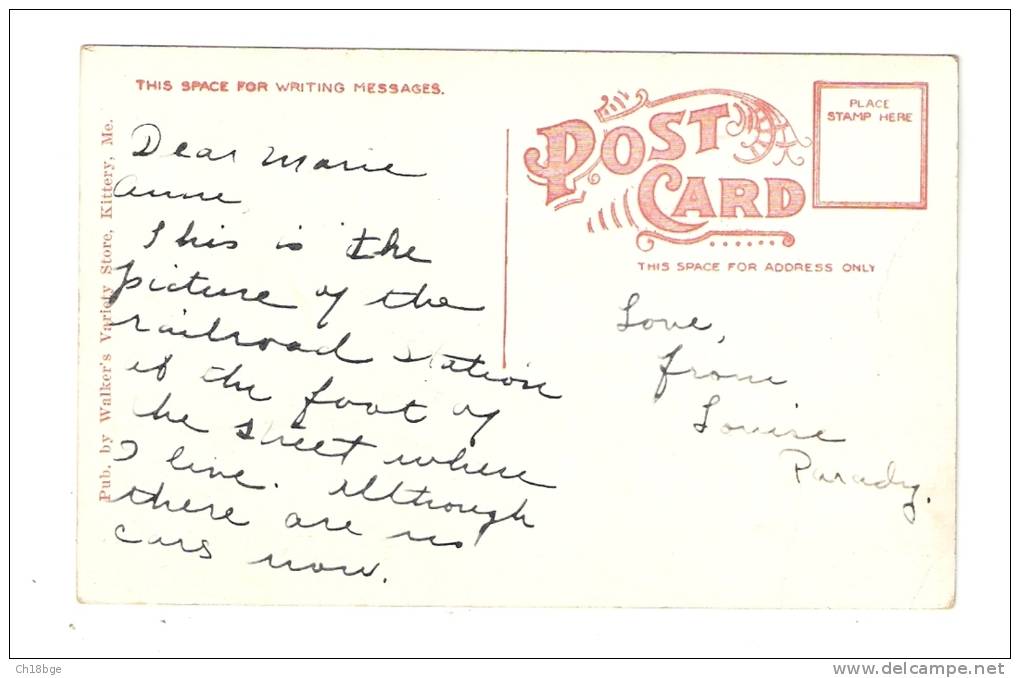 THIS SPACE FOR WRITING MESSAGES.
Dear Marie
Anne
This is the
picture of the
railroad station
at the foot of
the street where
I live. Although
there are no
cars now.
Pub. by Walker's Variety Store, Kittery, Me.
POST
CARD
PLACE
STAMP HERE
THIS SPACE FOR ADDRESS ONLY
Love,
from
Louise
Parady.
Ch18bge
www.delcampe.net